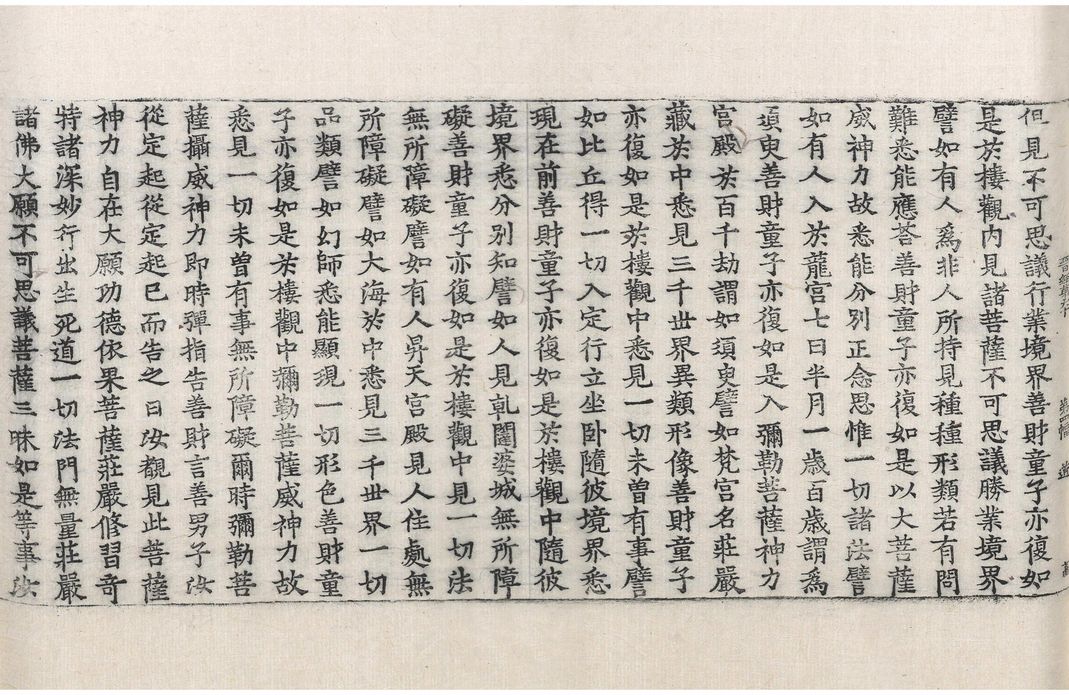 但見不可思議行業境界善財童子亦復如
是於樓觀内見諸菩薩不可思議勝業境界
譬如有人爲非人所持見種種形類若有問
難悉能應荅善財童子亦復如是以大菩薩
威神力故悉能分别正念思惟一切諸法譬
如有人入於龍宫七日半月一歲百歲謂爲
須臾善財童子亦復如是入彌勒菩薩神力
宫殿於百千劫謂如須臾譬如梵宫名莊嚴
藏於中悉見三千世界異類形像善財童子
亦復如是於樓觀中悉見一切未曽有事譬
如比丘得一切入定行立坐卧隨彼境界悉
現在前善財童子亦復如是於樓觀中隨彼
境界悉分别知譬如人見乹闥婆城無所障
礙善財童子亦復如是於樓觀中見一切法
無所障礙譬如有人昇天宫殿見人住處無
所障礙譬如大海於中悉見三千世界一切
品類譬如幻師悉能顯現一切形色善財童
子亦復如是於樓觀中彌勒菩薩威神力故
悉見一切未曽有事無所障礙爾時彌勒菩
薩攝威神力即時彈指告善財言善男子汝
從定起從定起已而告之曰汝覩見此菩薩
神力自在大願功德依果菩薩莊嚴修習奇
特諸深妙行出生死道一切法門無量莊嚴
諸佛大願不可思議菩薩三昧如是等事汝